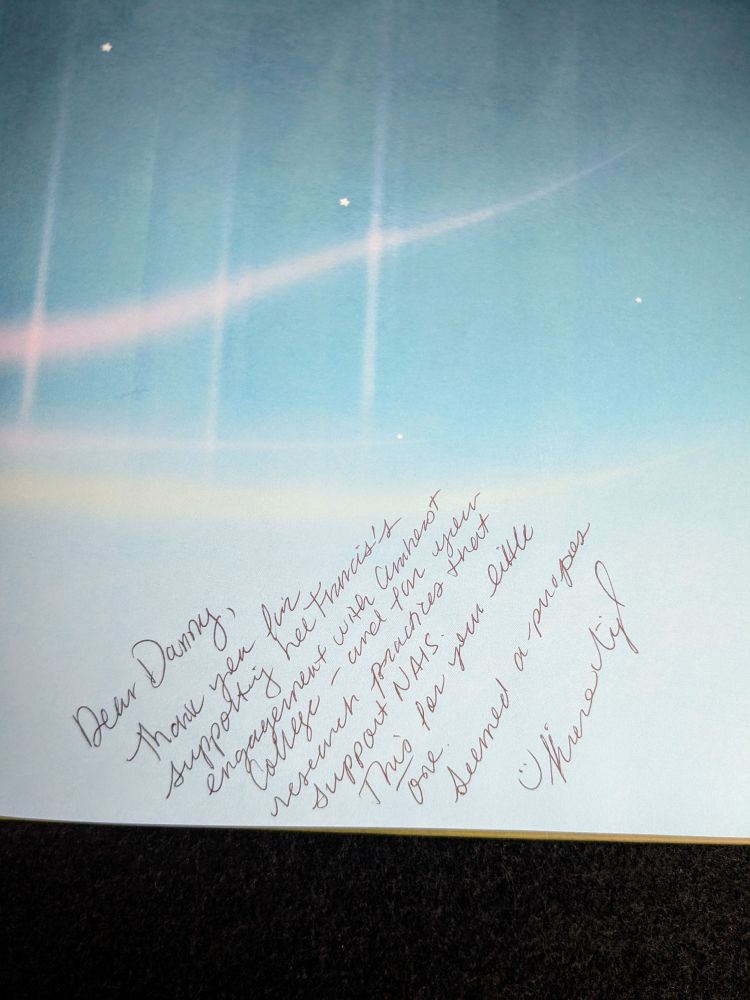 Dear Danny,
Thank you for
supporting Lee Francis's
engagement with Amherst
College – and for your
research practices that
support NAIS.
This for your little
one.
Seemed a-propos